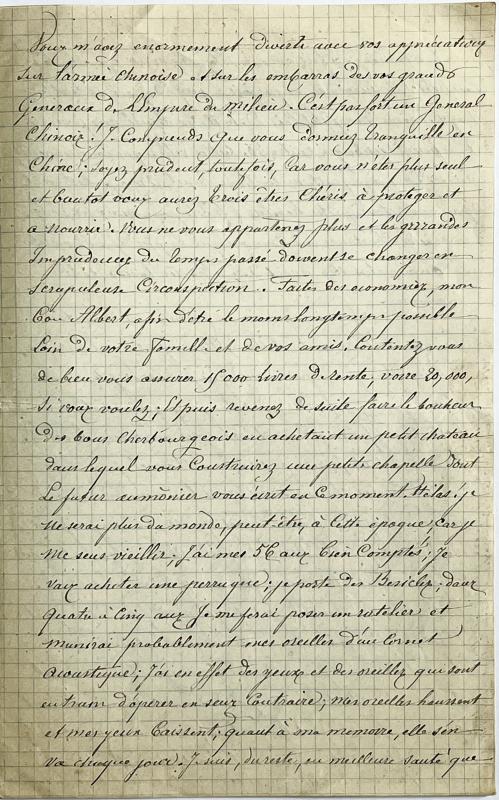 Vous m'avez enormement diverti avec vos appréciations
sur l'armée chinoise et sur les embarras des vos grands
Generaux de l'Empire du milieu. C'est par fort un General
Chinois. Je Comprends que vous dormiez tranquille en
Chine; soyez prudent, toutefois, Car vous n'êtes plus seul
et bientot vous aurez trois êtres Chéris à proteger et
a nourrir. Vous ne vous appartenez plus et les grandes
Imprudences du temps passé doivent se changer en
Scrupuleuse Circonspection. Faites des economies, mon
bon Albert, afin d'être le moins longtemps possible
Loin de votre famille et de vos amis. Contentez vous
de bien vous assurer 15000 livres de rente, voire 20,000,
Si vous voulez; Et puis revenez de suite faire le bonheur
Des bons Cherbourgeois en achetant un petit chateau
dans lequel vous Construirez une petite chapelle dont
Le futur aumônier vous écrit en Ce moment. Hélas! je
ne serai plus du monde, peut être, à Cette époque, Car je
me sens vieillir. J'ai mes 56 ans bien Comptés; Je
vais acheter une perruque; je porte des Besicles; dans
quatre à cinq ans je me ferai poser un ratelier et
munirai probablement mes oreilles d'un Cornet
acoustique; J'ai en effet des yeux et des oreilles qui sont
en train d'opérer en sens Contraire; mes oreilles haussent
et mes yeux baissent; quant à ma memoire, elle s'en
va chaque jour. Je suis, du reste, en meilleure santé que